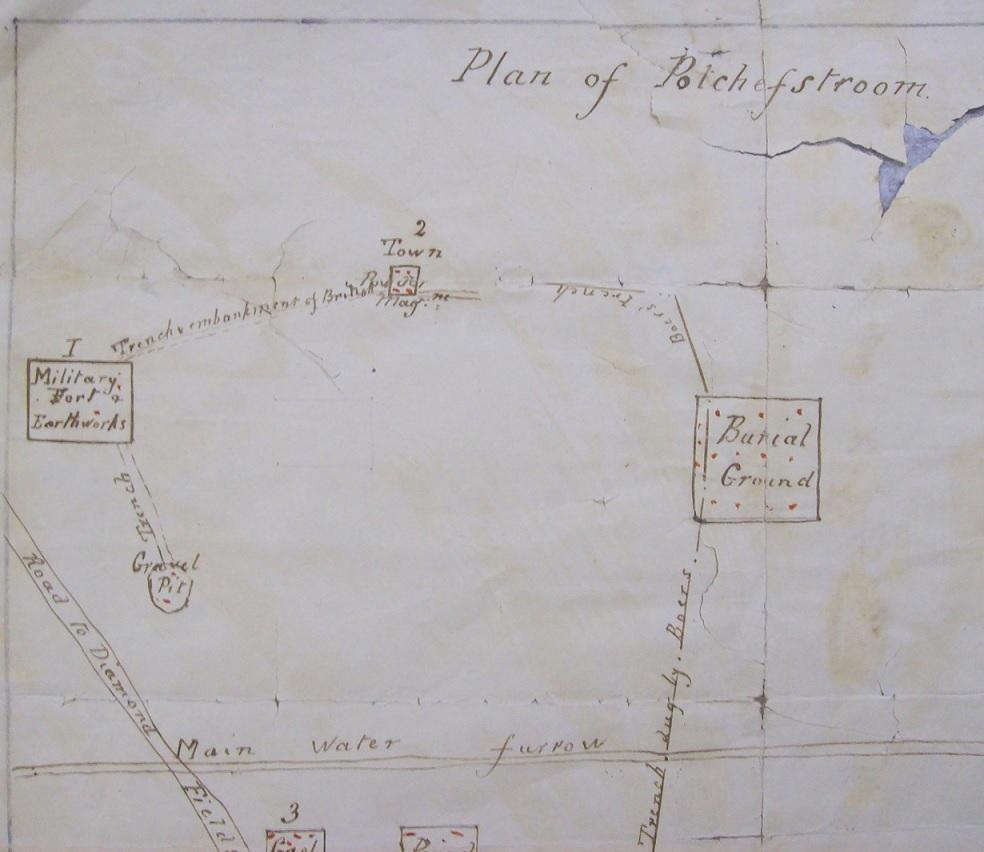 Plan of Potchefstroom.
2
Town
Mag:ne
Trench & embankment of British
Trench
Boers' trench
I
Military
Fort &
Earthworks
Burial
Ground
Trench
Gravel
Pit
Road to Diamond Fields
Trench dug by Boers.
Main Water furrow
3
Gaol